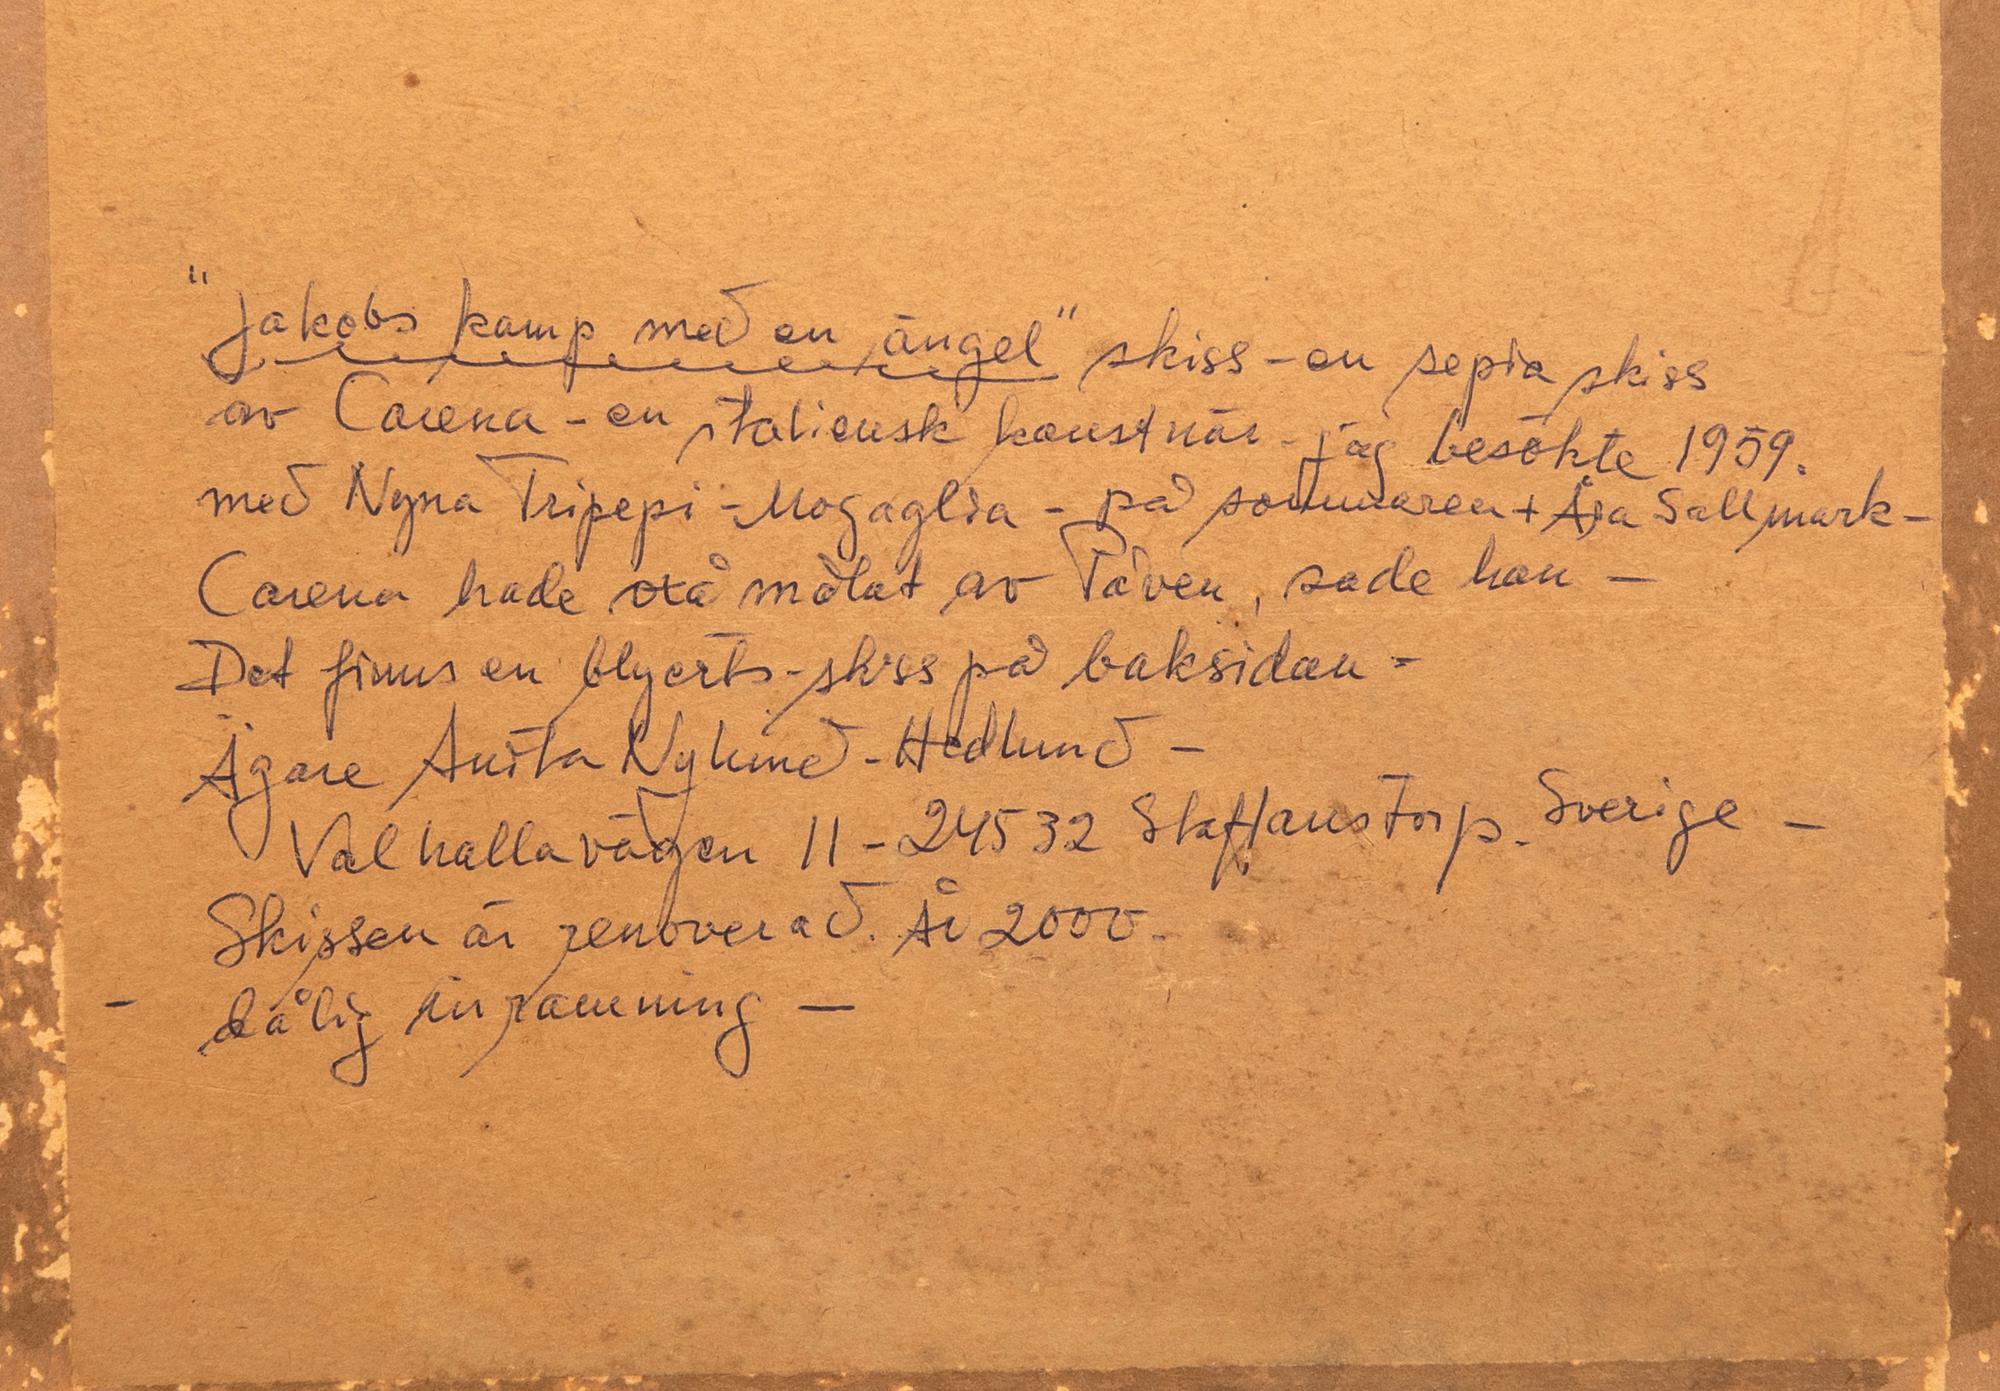 "Jakobs kamp med en ängel" skiss - en sepia skiss
av Carena - en italiensk konstnär - jag besökte 1959.
med Nyna Tripepi - Mogaglia - på sommaren + Åsa Sallmark -
Carena hade målat av Påven, sade han -
Det finns en blyerts-skiss på baksidan -
Ägare Anita Nylund - Hedlund -
Valhallavägen 11 - 24532 Staffanstorp. Sverige -
Skissen är renoverad. År 2000 -
- dålig inramning -